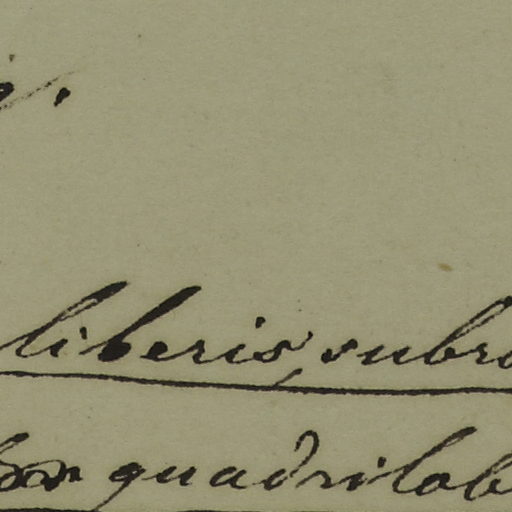 liberis, subro
quadrilob